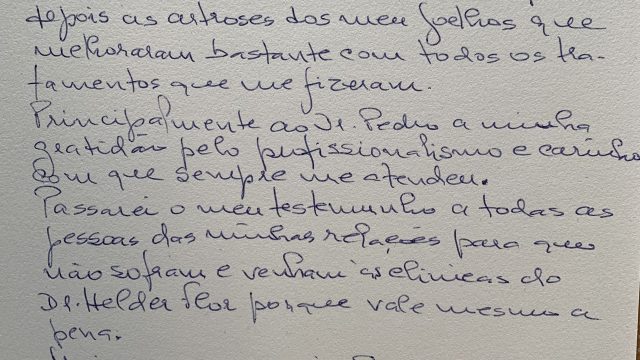 depois as artroses dos meu joelhos que
melhoraram bastante com todos os tra-
tamentos que me fizeram.
Principalmente ao Dr. Pedro a minha
gratidão pelo profissionalismo e carinho
com que sempre me atendeu.
Passarei o meu testemunho a todas as
pessoas das minhas relações para que
não sofram e venham às clinicas do
Dr. Helder Flor porque vale mesmo a
pena.